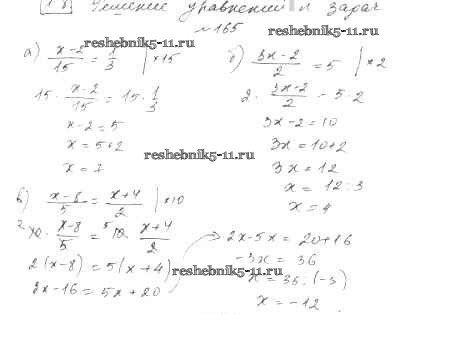 Решение уравнений и задач
№165
а) x-2/15 = 1/3 | ×15
15 · x-2/15 = 15 · 1/3
x-2=5
x=5+2
x=7
б) 3x-2/2 = 5 | ×2
2 · 3x-2/2 = 5·2
3x-2=10
3x=10+2
3x=12
x = 12:3
x=4
в) x-8/5 = x+4/2 | ×10
2 10 · x-8/5 = 5 10 · x+4/2
2(x-8) = 5(x+4)
2x-16=5x+20
2x-5x= 20+16
-3x = 36
x = 36:(-3)
x = -12
reshebnik5-11.ru
reshebnik5-11.ru
reshebnik5-11.ru
reshebnik5-11.ru